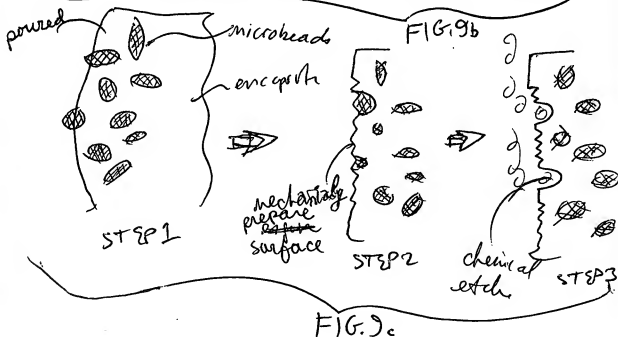 FIG.9b
poured
microbeads
STEP1
mechanically
prepare
surface
STEP2
chemical
etch
STEP3
FIG.9c